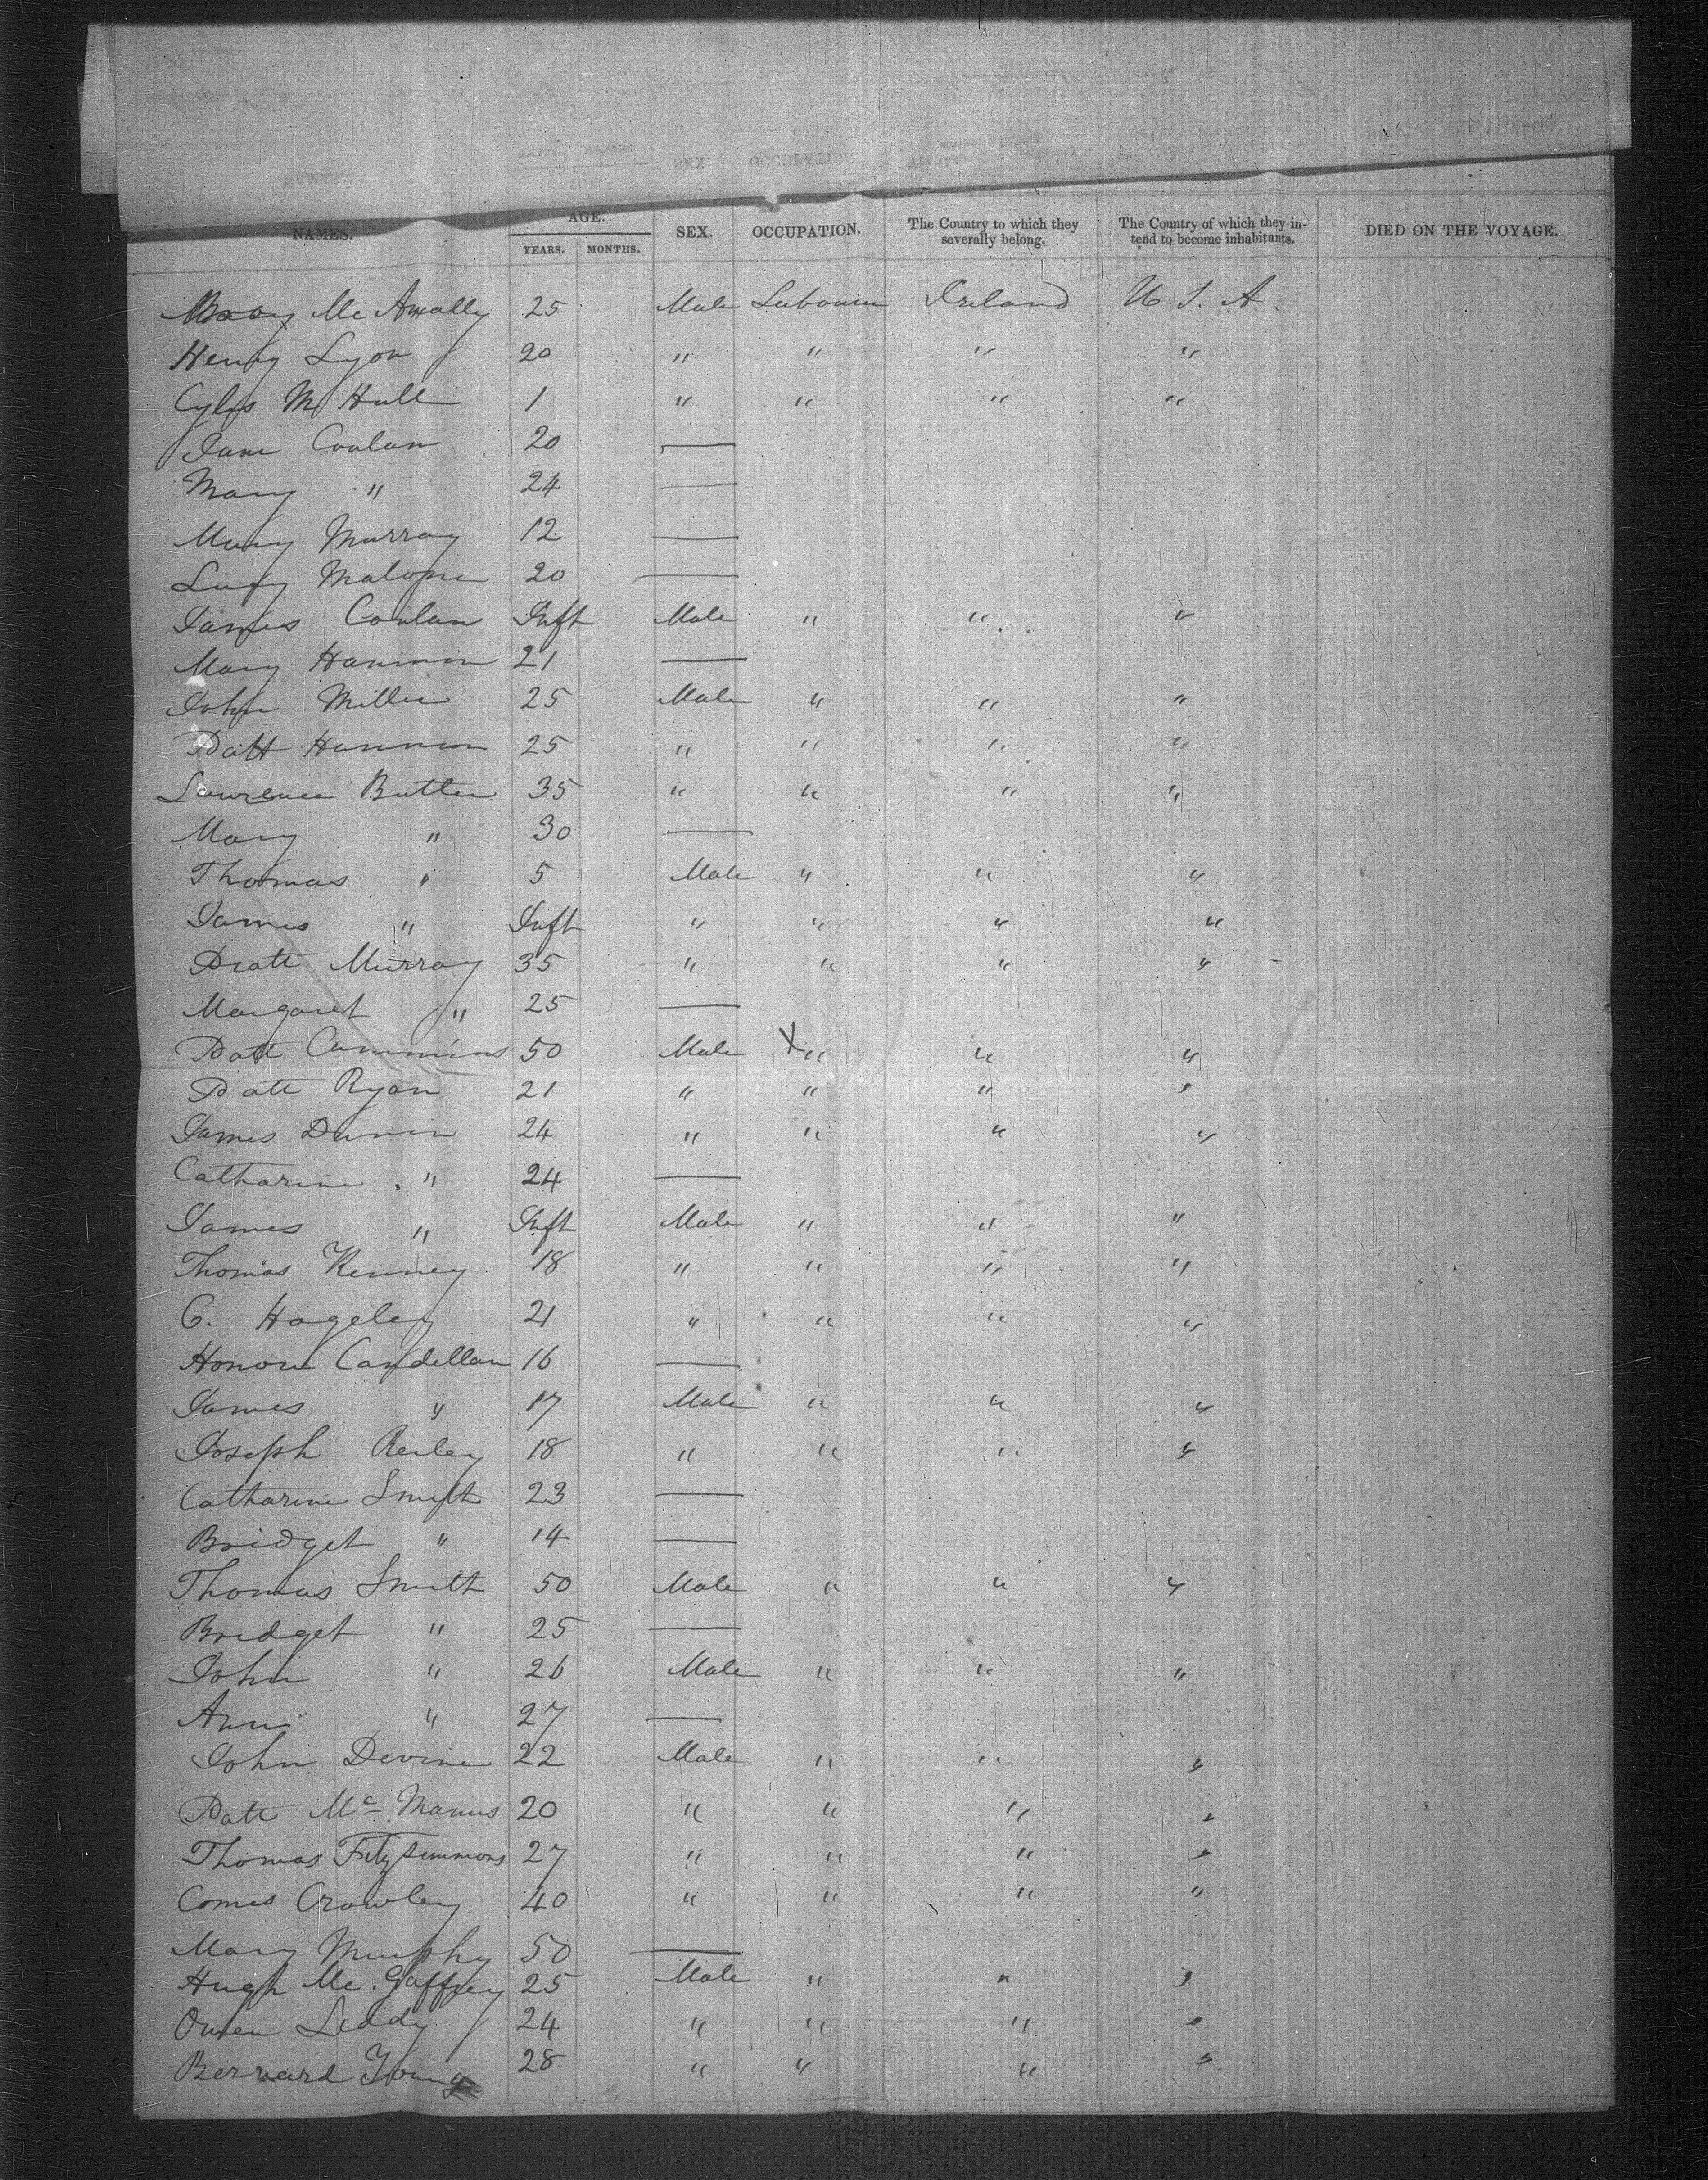 NAMES. AGE. SEX. OCCUPATION. The Country to which they severally belong. The Country of which they intend to become inhabitants. DIED ON THE VOYAGE.
YEARS. MONTHS.
Mc Anally 25 Male Labourer Ireland U. S. A.
Henry Lyon 20 " " " "
Mc Hall 1 " " " "
Jane Conlan 20 —
Mary " 24 —
Mary Murray 12 —
Lucy Malone 20 —
James Conlan Inft Male " " "
Mary Hannon 21 —
John Miller 25 Male " " "
Patt Hannon 25 " " " "
Lawrence Butler 35 " " " "
Mary " 30 —
Thomas " 5 Male " " "
James " Inft " " " "
Patt Murray 35 " " " "
Margaret " 25 —
Patt Cummins 50 Male X " " "
Patt Ryan 21 " " " "
James Dunn 24 " " " "
Catharine " 24 —
James " Inft Male " " "
Thomas Kenney 18 " " " "
C. Hageley 21 " " " "
Honour Candellan 16 —
James " 17 Male " " "
Joseph Reiley 18 " " " "
Catharine Smith 23 —
Bridget " 14 —
Thomas Smith 50 Male " " "
Bridget " 25 —
John " 26 Male " " "
Ann " 27 —
John Devine 22 Male " " "
Patt Mc Manus 20 " " " "
Thomas Fitzsimmons 27 " " " "
Comes Crowley 40 " " " "
Mary Murphy 50 —
Hugh Mc. Gaffrey 25 Male " " "
Owen Leddy 24 " " " "
Bernard Young 28 " " " "